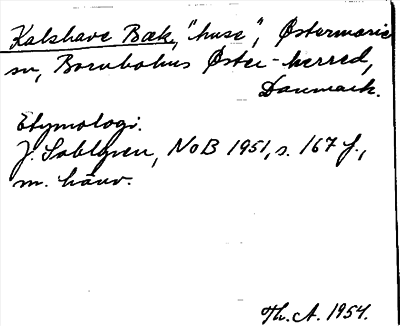 Kalshave Bæk, "huse", Østermarie
sn, Bornholms Øster-herred,
Danmark.
Etymologi.
J. Sahlgren, NoB 1951, s. 167 f.,
m. hänv.
Th. A. 1954.